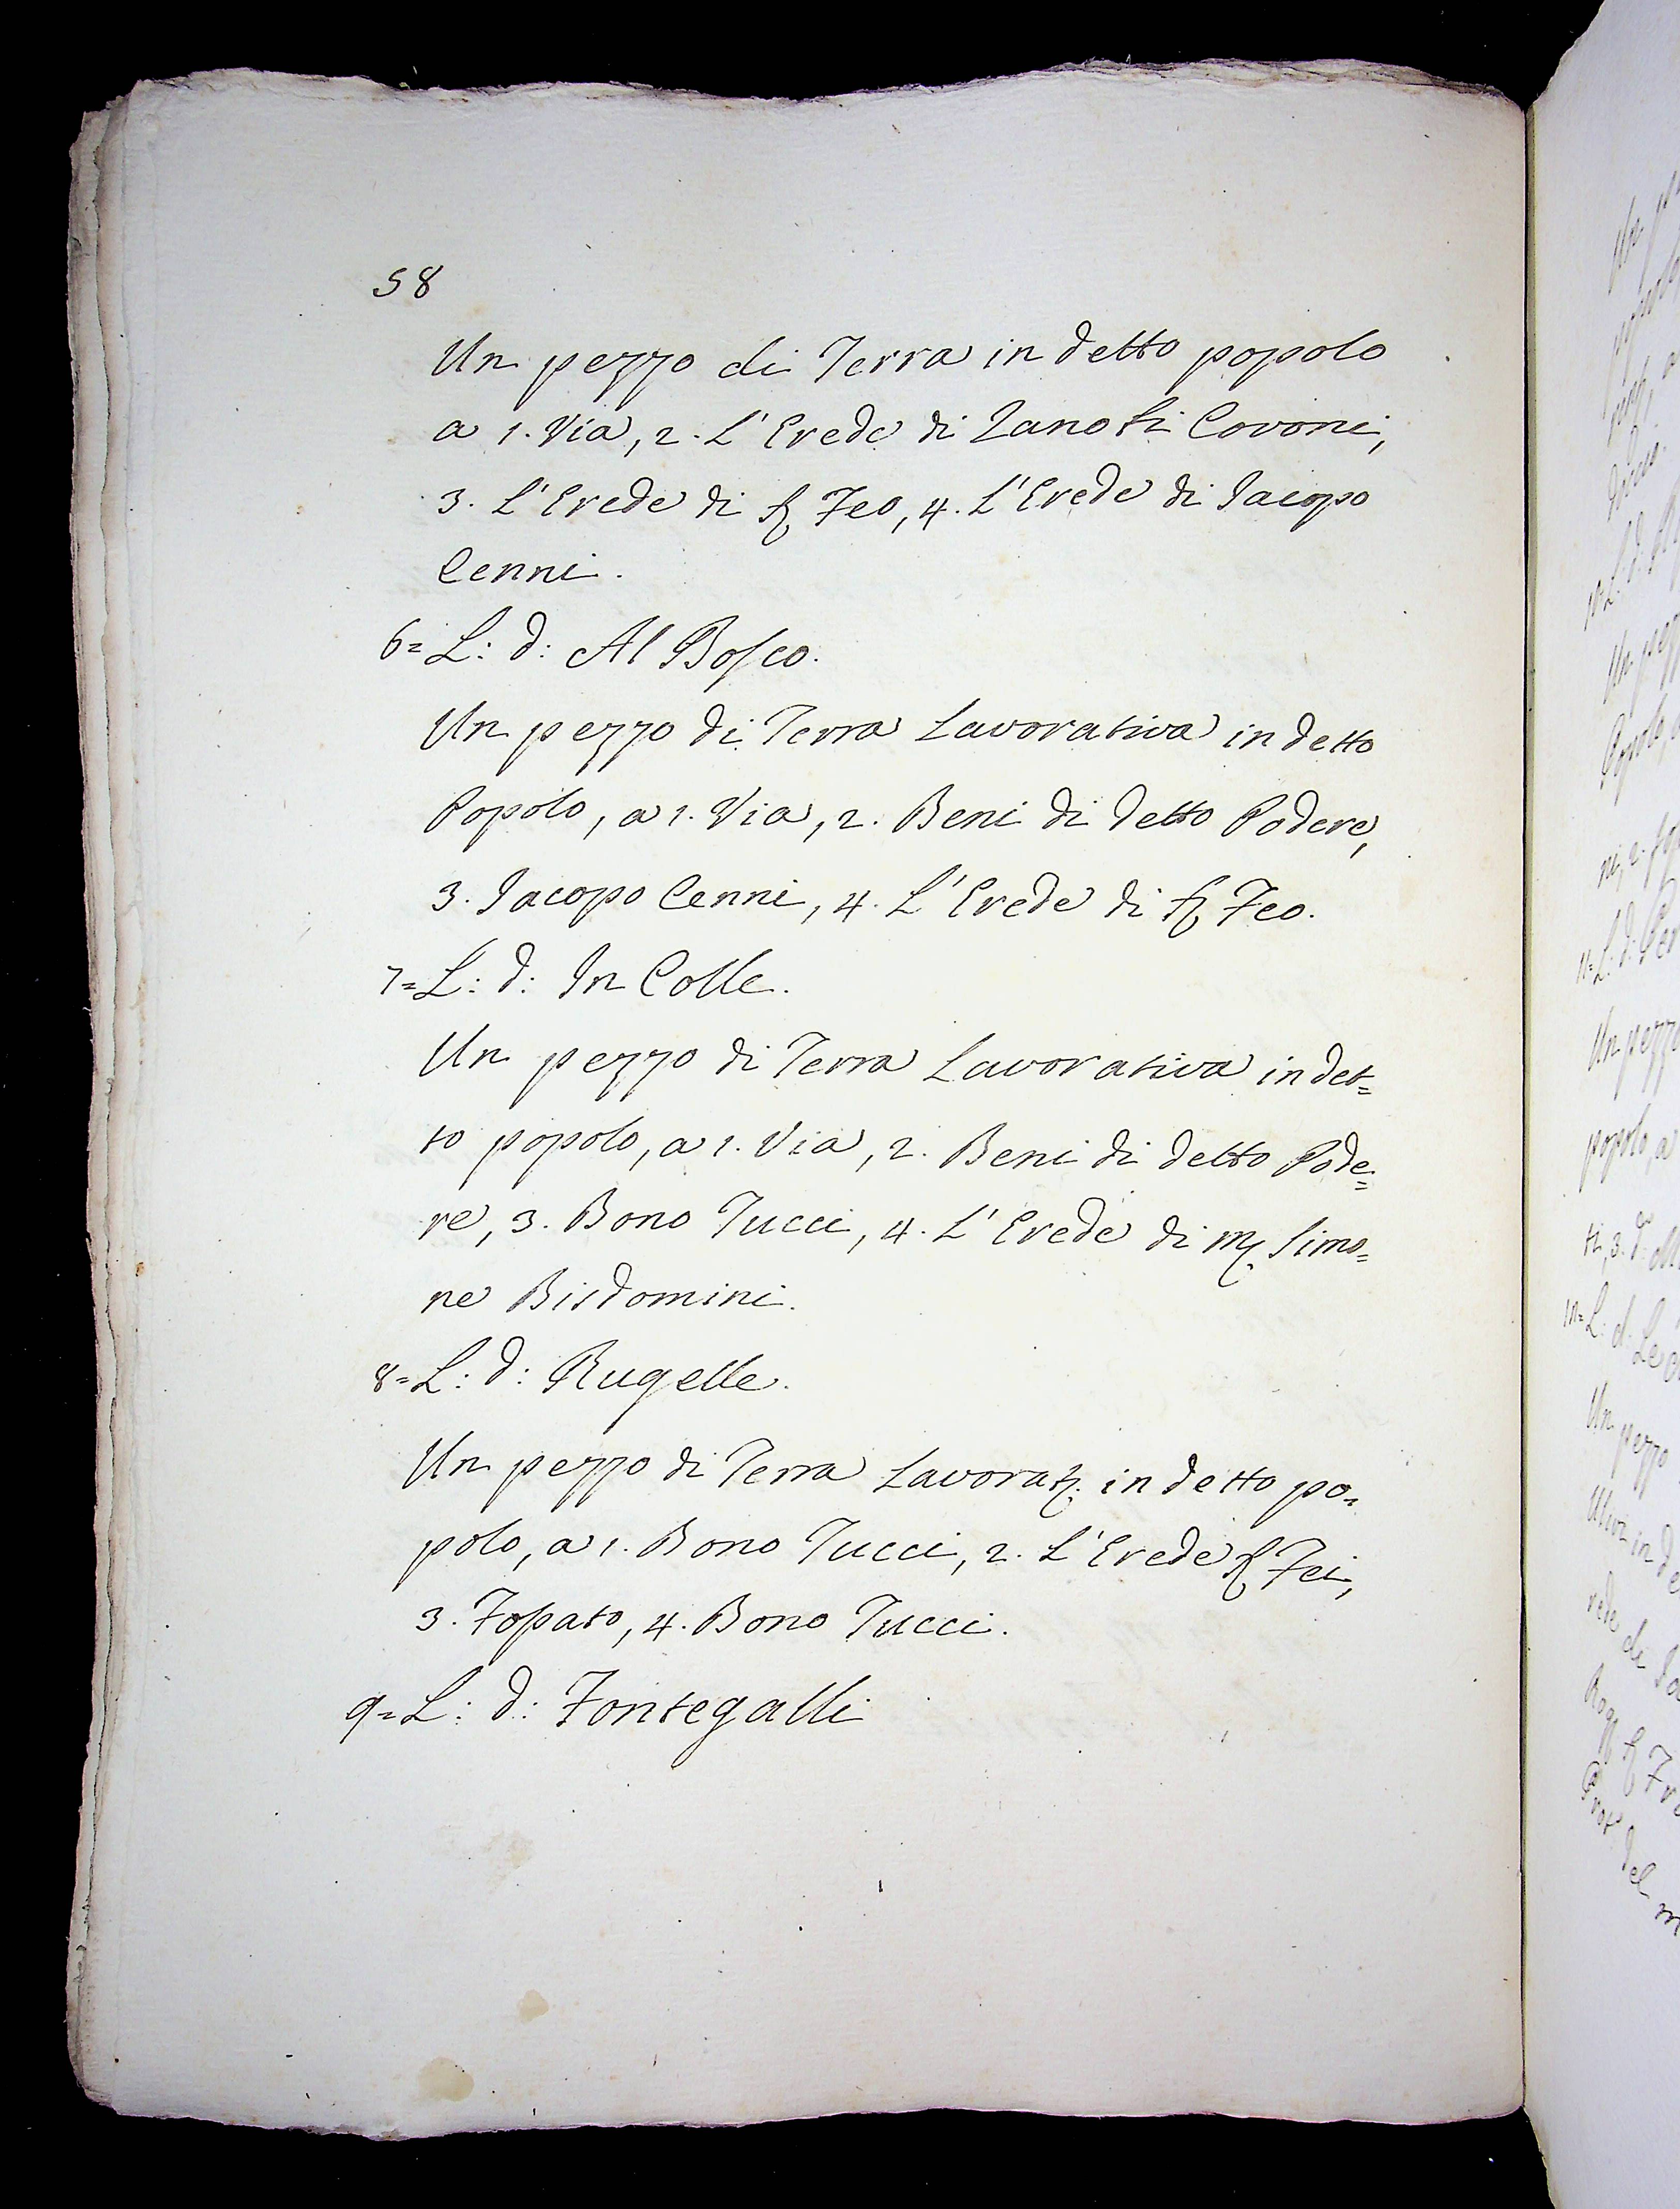 58
Un pezzo di Terra in detto popolo
a 1. Via, 2. L'Erede di Zanoti Covoni,
3. L'Erede di S. Feo, 4. L'Erede di Jacopo
Cenni.
6= L: d: Al Bosco.
Un pezzo di Terra Lavorativa in detto
Popolo, a 1. Via, 2. Beni di detto Podere,
3. Jacopo Cenni, 4. L'Erede di S. Feo.
7= L: d: In Colle.
Un pezzo di Terra Lavorativa in det=
to popolo, a 1. Via, 2. Beni di detto Pode=
re, 3. Bono Tucci, 4. L'Erede di M. Simo=
ne Bisdomini.
8= L: d: Rugelle.
Un pezzo di Terra Lavorat. in detto po=
polo, a 1. Bono Tucci, 2. L'Erede S. Fei,
3. Fossato, 4. Bono Tucci.
9= L: d: Fontegalli